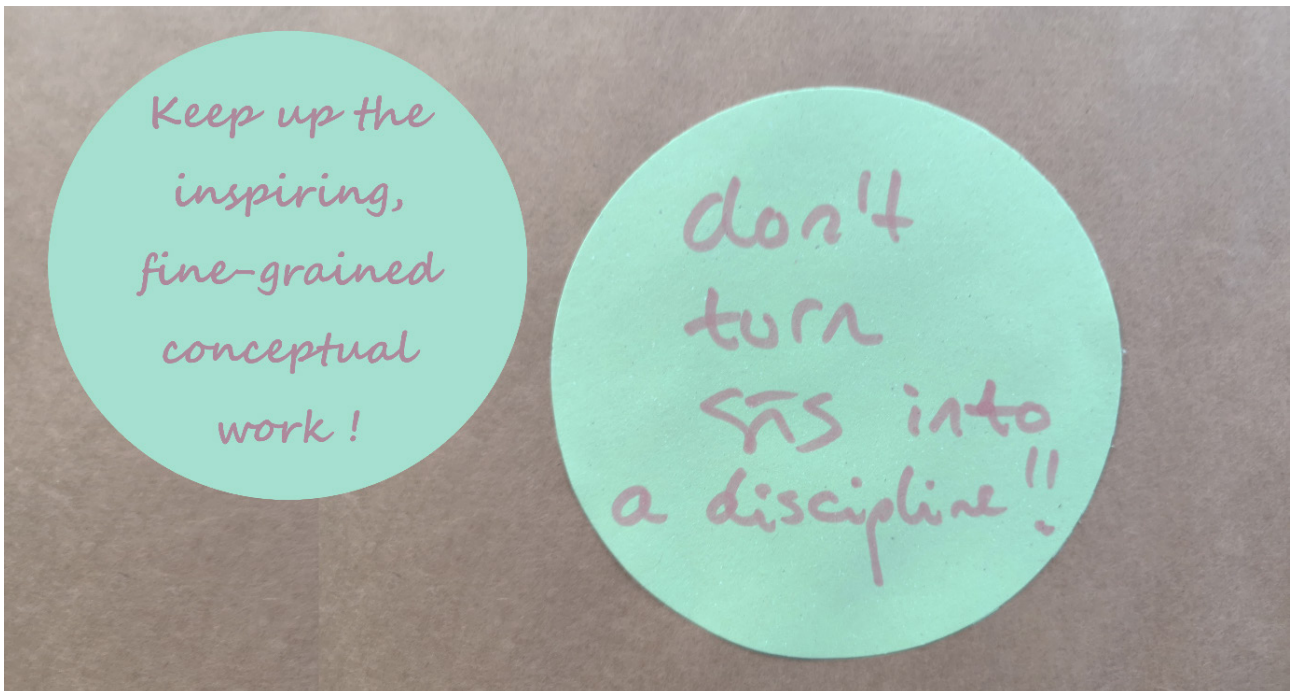 Keep up the
inspiring,
fine-grained
conceptual
work !
don't
turn
into
a discipline!!